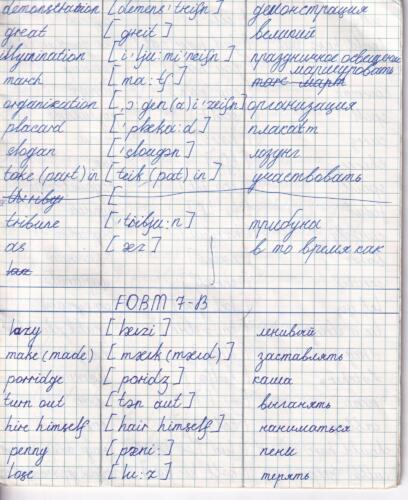 demonstration [demens'treiʃn] демонстрация
great [greit] великий
illumination [i'lju:mi'neiʃn] праздничное освещение
march [ma:tʃ] маршировать
organization [,ɔ:gen(a)i'zeiʃn] организация
placard ['plæka:d] плакат
slogan ['slougən] лозунг
take (part) in [teik (pat) in] участвовать
tribune ['tribju:n] трибуна
as [æz] в то время как
FORM 7-B
lazy [læizi] ленивый
make (made) [mæik (mæid)] заставлять
porridge [poridʒ] каша
turn out [tən aut] выгонять
hire himself [hair himself] наниматься
penny [pæni:] пени
lose [lu:z] терять